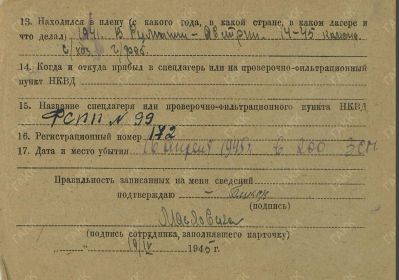 13. Находился в плену (с какого года, в какой стране, в каком лагере и
что делал) 1941. В Румыния - Австрия. 14-45
с/хоз. раб.
14. Когда и откуда прибыл в спецлагерь или на проверочно-фильтрационный
пункт НКВД
15. Название спецлагеря или проверочно-фильтрационного пункта НКВД
ФСПП № 99
16. Регистрационный номер 172
17. Дата и место убытия 16 апреля 1945 г. в 200 ЗСП
Правильность записанных на меня сведений
подтверждаю
(подпись)
(подпись сотрудника, заполнявшего карточку)
19/IV 1945 г.